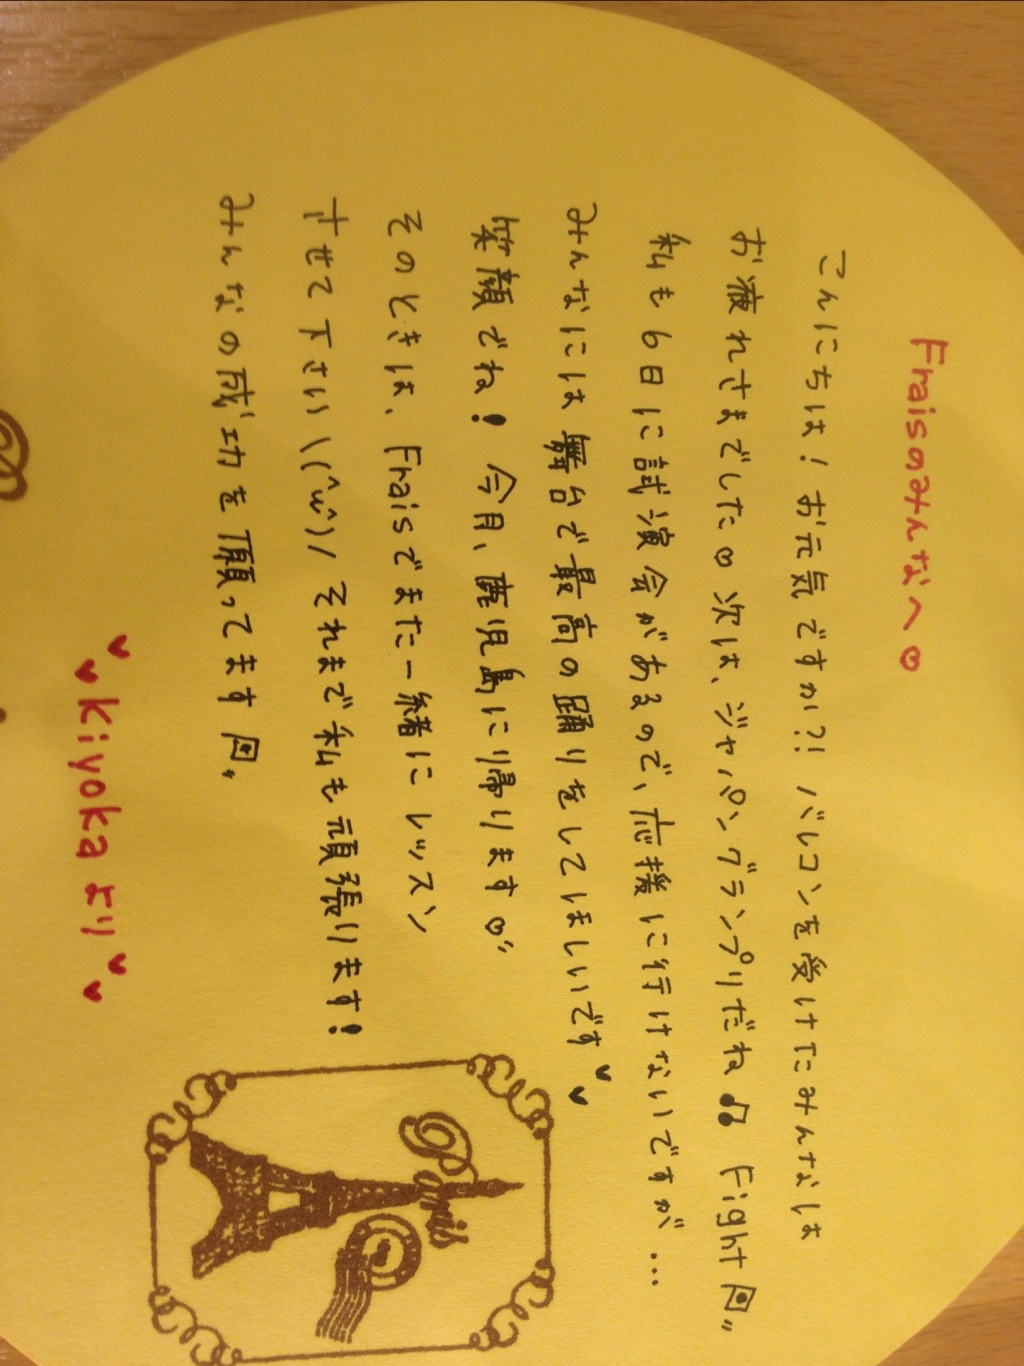 Fraisのみんなへ♡
こんにちは！お元気ですか？！バレコンを受けたみんなは
お疲れさまでした♡次は、ジャパングランプリだね♫ Fight
私も6日に試演会があるので、応援に行けないですが…
みんなには舞台で最高の踊りをしてほしいです♥♥
笑顔でね！今月、鹿児島に帰ります♡"
そのときは、Fraisでまた一緒にレッスン
させて下さい\(^ω^)/それまで私も頑張ります！
みんなの成功を願ってます
♥♥Kiyokaより♥♥
Paris